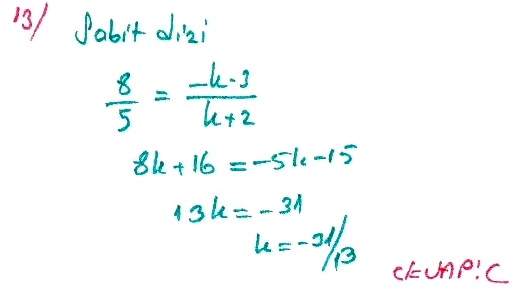 13/ Sabit dizi
8/5 = -k-3/k+2
8k+16 = -5k-15
13k = -31
k = -31/13
CEVAP: C